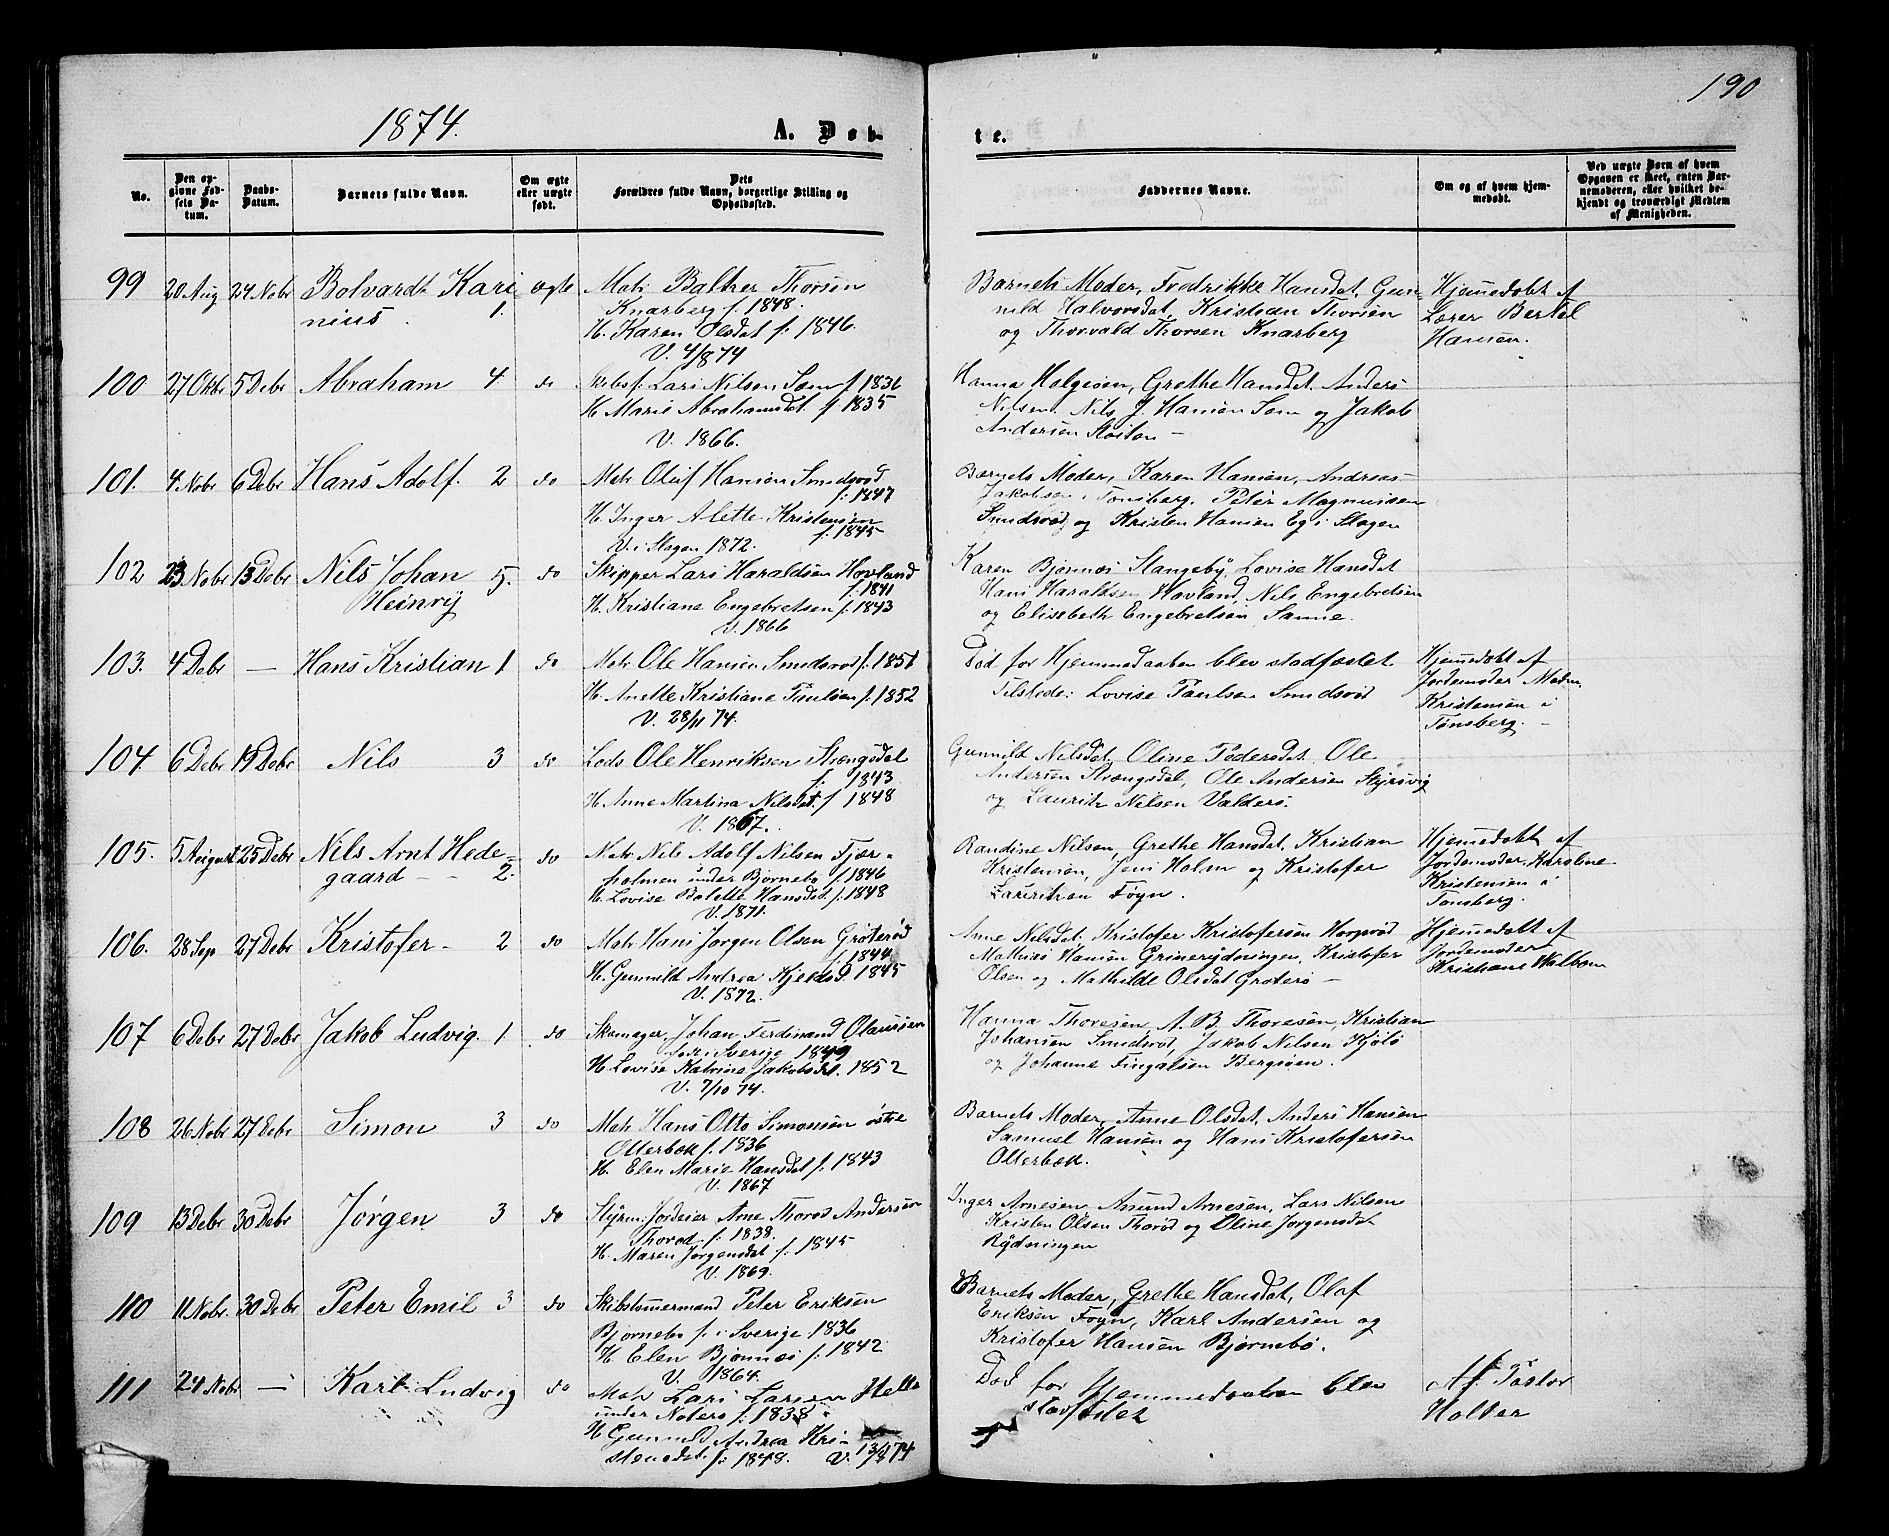 190
1874.
A. Døb-
te.
No.
Den op-
givne Fød-
sels Da-
tum.
Daabs-
Datum.
Barnets fulde Navn.
Om ægte
eller uægte
født.
Dets
Forældres fulde Navn, borgerlige Stilling og
Opholdssted.
Faddernes Navne.
Om og af hvem hjem-
medøbt.
Ved uægte Barn af hvem
Opgaven er skeet, enten Bar-
nemoderen, eller hvilket be-
kjendt og troværdigt Medlem
af Menigheden.
99 20 Aug 24 Nobr Bolvardt Kari
nius. 1.
ægte
Matr Balther Thorsen
Knarberg f. 1848.
H. Karen Olsdat f. 1846.
V. 4/874
Barnets Moder, Fredrikke Hansdat, Gun-
nild Halvorsdat, Kristian Thorsen
og Thorvald Thorsen Knarberg
Hjemmedøbt af
Lærer Bertel
Hansen.
100 27 Oktr 5 Debr Abraham 4 do
Skibsf. Lars Nilsen Sem f 1836
H. Marie Abrahamsdat. f 1835
V. 1866.
Hanna Holgesen, Grethe Hansdat. Anders
Nilsen. Nils J. Hansen Sem og Jakob
Andersen
101. 4 Nobr 6 Debr Hans Adolf. 2 do
Matr Oluf Hansen Smidsrød
f. 1847
H. Inger Alette Kristensen
f. 1845
V. i Slagen 1872.
Barnets Moder, Karen Hansen, Andreas
Jakobsen i Tønsberg. Peter Magnussen
Smidsrød, og Kristen Hansen Eg i Slagen
102 23 Nobr 13 Debr Nils Johan 5.
Heinrij
do
Skipper Lars Haraldsen Hovland
f. 1841
H. Kristiane Engebretsen f. 1843
V. 1866
Karen Bjønnes Stangeby, Lovise Hansdat
Hans Haraldsen Hovland, Nils Engebretsen
og Elisabeth Engebretsen Sanne.
103. 4 Debr — Hans Kristian 1 do
Matr Ole Hansen Smidsrød f. 1851
H. Anette Kristiane Paulsen f. 1852
V. 28/11 74.
Død for Hjemmedaaben blev stadfæstet
Tilstede: Lovise Paulsen Smidsrød
Hjemmedøbt af
Jordemoder Madm.
Kristensen i
Tønsberg. -
104. 6 Debr 19 Debr Nils 3 do
Lods Ole Henriksen Strengsdal
f. 1843
H. Anne Martina Nilsdat. f 1848
V. 1867.
Gunnild Nilsdat, Oline Pedersdat. Ole
Andersen Strengsdal, Ole Andersen Styrsvig
og Lauritz Nilsen Valders.
105. 5 August 25 Debr Nils Arnt Hede=
gaard — - 2.
do
Matr Nils Adolf Nilsen Fjær-
holmen under Bjørnebo f 1846
H. Lovise Balette Hansdat. f. 1848
V. 1871.
Randine Nilsen, Grethe Hansdat, Kristian
Kristensen, Jens Holm og Kristofer
Lauritzen Føyn.
Hjemmedøbt af
Jordemoder Karoline
Kristensen i
Tønsberg.
106. 28 Sep 27 Debr Kristofer - 2 do
Matr Hans Jørgen Olsen Grøterød
f. 1844
H. Gunnild Andrea Kjelsd. 1845
V. 1872.
Anne Nilsdat, Kristofer Kristofersen Horprød
Mathias Hansen Grinerydningen, Kristofer
Olsen og Mathilde Olsdat Grøterø —
Hjemmedøbt af
Jordemoder
Kristiane Walbom
107 6 Debr 27 Debr Jakob Ludvig. 1. do
Skomager, Johan Ferdinand Olaussen
født i Sverige 1849
H Lovise Katrine Jakobsdat. 1852
V. 7/10 74.
Hanna Thoresen, A. B. Thoresen, Kristian
Johansen Smidsrød, Jakob Nilsen Kjølø
og Johanne Fingalsen Bergsøen.
108 26 Nobr 27 Debr Simon 3 do
Matr Hans Otto Simonsen østre
Otterbæk f. 1836
H. Elen Marie Hansdat f. 1843
V. 1867
Barnets Moder, Anne Olsdat, Anders Hansen
Samuel Hansen og Hans Kristofersen
Otterbæk.
109 13 Debr 30 Debr Jørgen 3 do
Styrm. Jordeier Arne Thorød Andersen
Thorød. f: 1838.
H. Maren Jørgensdat f. 1845
V. 1869.
Inger Arnesen, Amund Arnesen, Lars Nilsen
Kristen Olsen Thorød og Oline Jørgensdat
Rydningen
110 11 Nobr. 30 Debr Peter Emil 3 do
Skibstømermand Peter Eriksen
Bjørnebo f. i Sverige 1836
H. Elen Bjønnes f. 1842
V. 1864.
Barnets Moder, Grethe Hansdat, Olaf
Eriksen Føyn, Karl Andersen og
Kristofer Hansen Bjørnebø.
111 24 Nobr — Karl Ludvig do
Matr Lars Larsen Hella
under Noters f. 1838
H Gunnild Andrea Kri-
stensdat. f: 1848. V. 13/3 74
Død for Hjemmedaaben blev
stadfæstet
Af Pastor
Holter